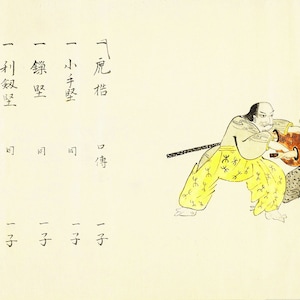 一虎挫 口傳 一子
一小手堅 同 一子
一鎖堅 同 一子
一利劔堅 同 一子